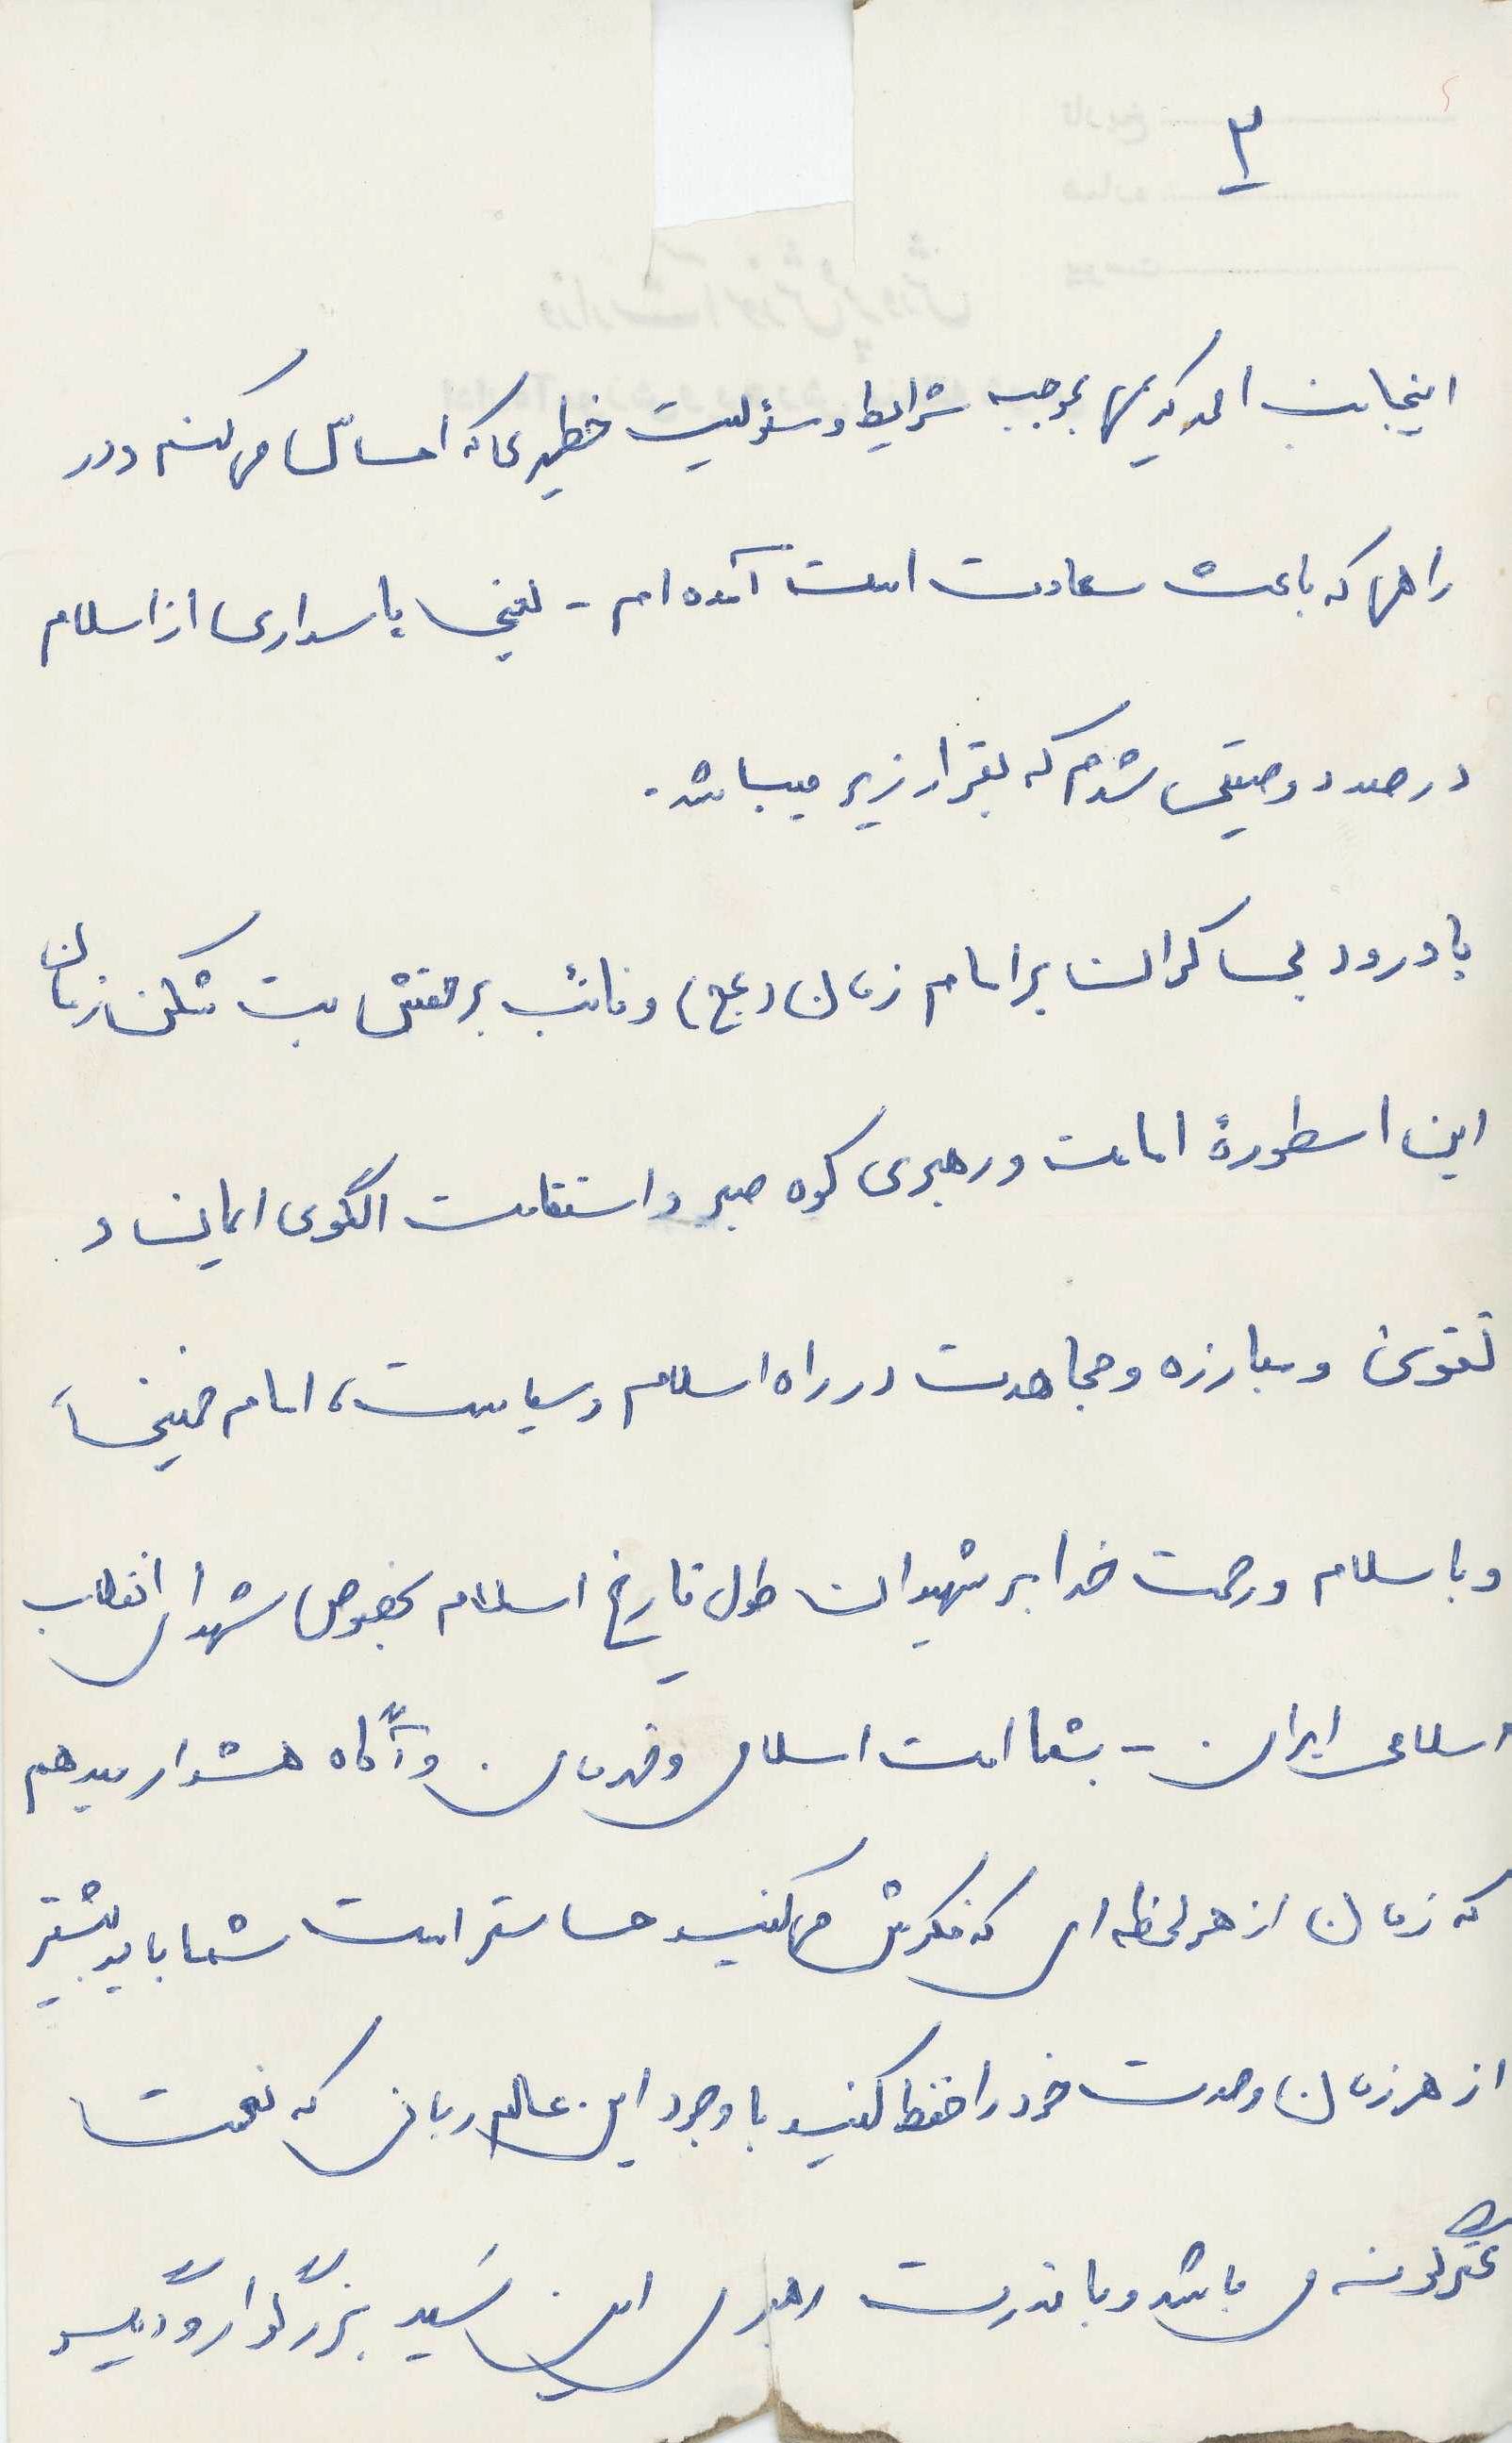 ۳
اینجانب احمد کریمی بموجبه شرایط و مسؤلیت خطیری که احساس می کنم و در
راهی که باعث سعادت است آمده ام - یعنی پاسداری از اسلام
درصدد وصیتی شدم که بقرار زیر میباشد.
با درود بی کران بر امام زمان (عج) و نائب برحقش بت شکن زمان
این اسطورهٔ امامت و رهبری کوه صبر و استقامت الگوی ایمان و
تقوی و مبارزه و مجاهدت در راه اسلام و سیاست، امام خمینی،
و با سلام و رحمت خدا بر شهیدان طول تاریخ اسلام بخصوص شهدای انقلاب
اسلامی ایران - بشما امت اسلامی و قهرمان و آگاه هشدار میدهم
که زمان از هر لحظه ای که فکرش می کنید حساستر است شما باید بیشتر
از هر زمان وحدت خود را حفظ کنید با وجود این عالم ربانی که نعمت
می باشد و با قدرت رهبری این سید بزرگوار و